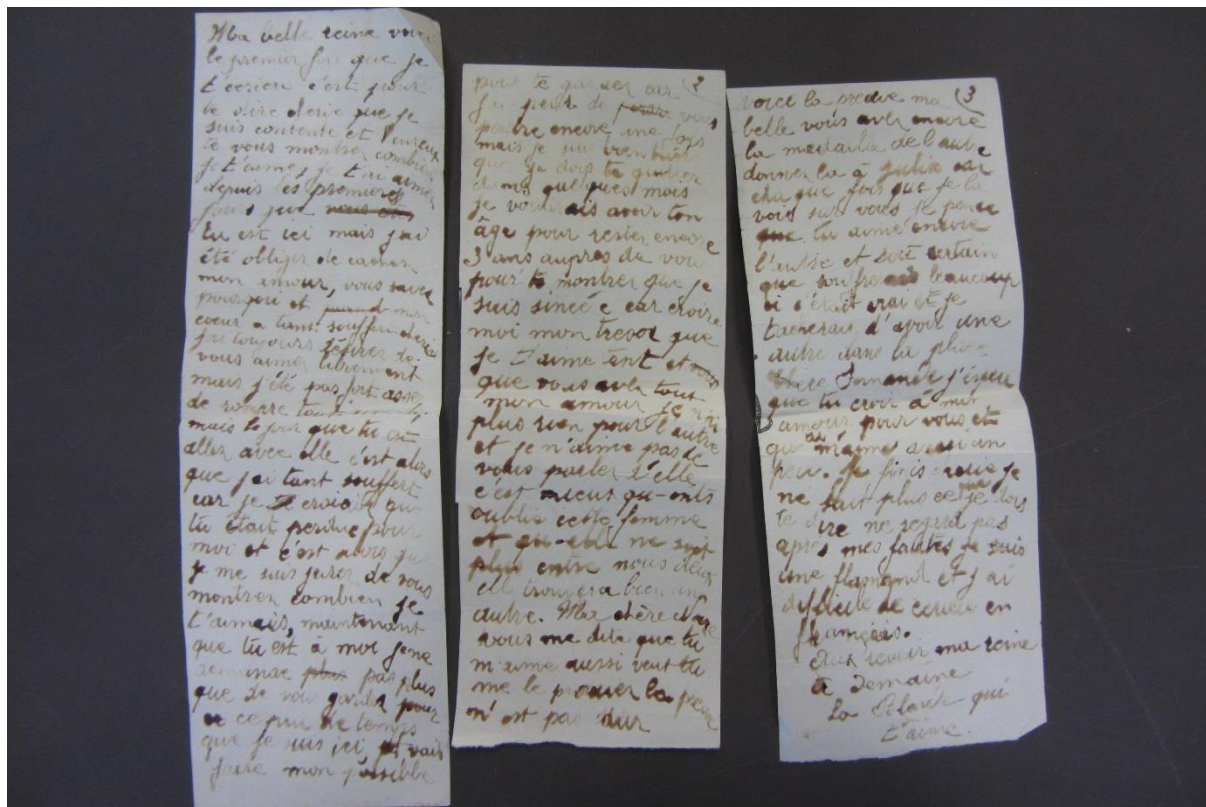 Ma belle reine voici
le premier fois que je
t'ecrien c'est pour
te dire cherie que je
suis contente et heureux
te vous montrer combien
je t'aime, je t'ai aimer
depuis les premieres
jours que
tu est ici mais j'ai
été obliger de cacher
mon amour, vous savez
pourquoi et mon
coeur a tant souffert cherie
j'ai toujours désirer de
vous aimer librement
mais j'été pas fort asser
de rompre
mais le jour que tu est
aller avec elle c'est alors
que j'ai tant souffert
car je croiaise que
tu était perdue pour
moi et c'est alors que
je me suis jurer de vous
montrer combien je
t'aimais, maintenant
que tu est à moi je ne
demande plus pas plus
que de vous garder pour
ce peu de temps
que je suis ici, vais
faire mon possible
2
pour te garder car
j'ai peur de vous
perdre encore une fois
mais je sui bientôt
que je dois te quitter
dans quelques mois
je voudrais avoir ton
âge pour rester encore
3 ans aupres de vou
pour te montrer que je
suis sincère car croire
moi mon tresor que
je t'aime tent et
que vous aver tout
mon amour je n'ai
plus rien pour l'autre
et je n'aime pas de
vous parler d'elle
c'est mieus qu-onts
oublie cette femme
et qu-elle ne soit
plus entre nous deux
elle trouvera bien une
autre. Ma chère
vous me dite que tu
m'aime aussi veut tu
me le prouver la preuve
n'est pas dur
3
voici la preuve ma
belle vous aver encore
la medaille de l'autre
donner la à Julia car
cha que fois que je la
vois sur vous je pense
que tu aime encore
l'autre et soit certain
que soufrerais beaucoup
si s'était vrai et je
tacherais d'avoir une
autre dans la place
Chère Fernande j'espère
que tu croir a mon
amour pour vous et
que m'aime aussi un
peu. Je finis cherie je
ne sait plus ce que je dois
te dire ne regard pas
apres mes fautes je suis
une flamand et j'ai
difficile de ecrire en
français.
Aux revoir ma reine
à Demaine
La Blonde qui
t'aime.